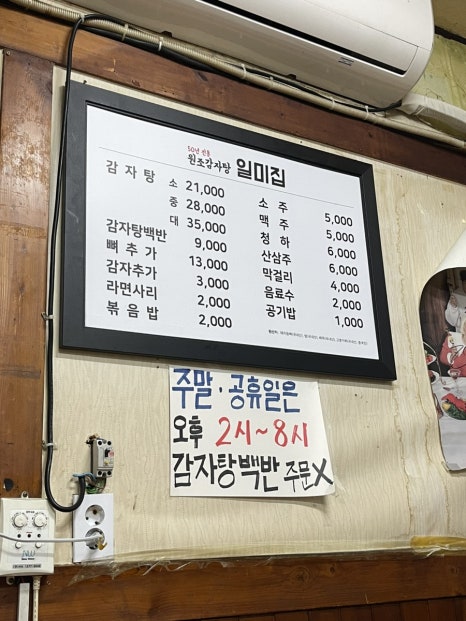 50년 전통
원조감자탕 일미집
감자탕 소 21,000
중 28,000
대 35,000
감자탕백반 9,000
뼈추가 13,000
감자추가 3,000
라면사리 2,000
볶음밥 2,000
소주 5,000
맥주 5,000
청하 6,000
산삼주 6,000
막걸리 4,000
음료수 2,000
공기밥 1,000
주말·공휴일은
오후 2시~8시
감자탕백반 주문X